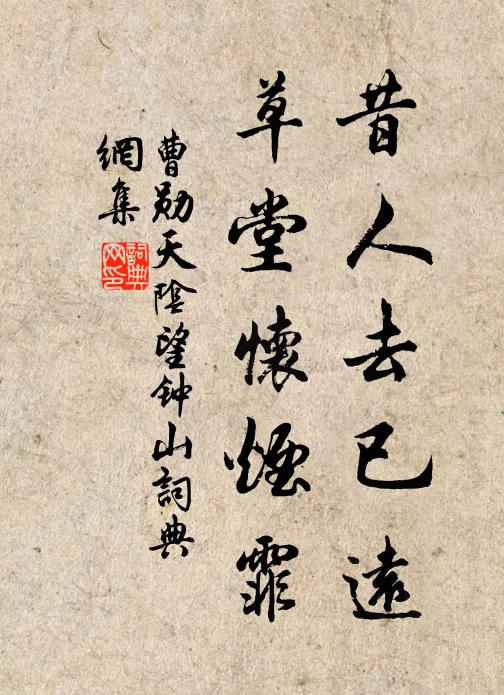 昔人去已遠
草堂懷煙霏
曹勛天陰望钟山詞典
網集
詞典
网印